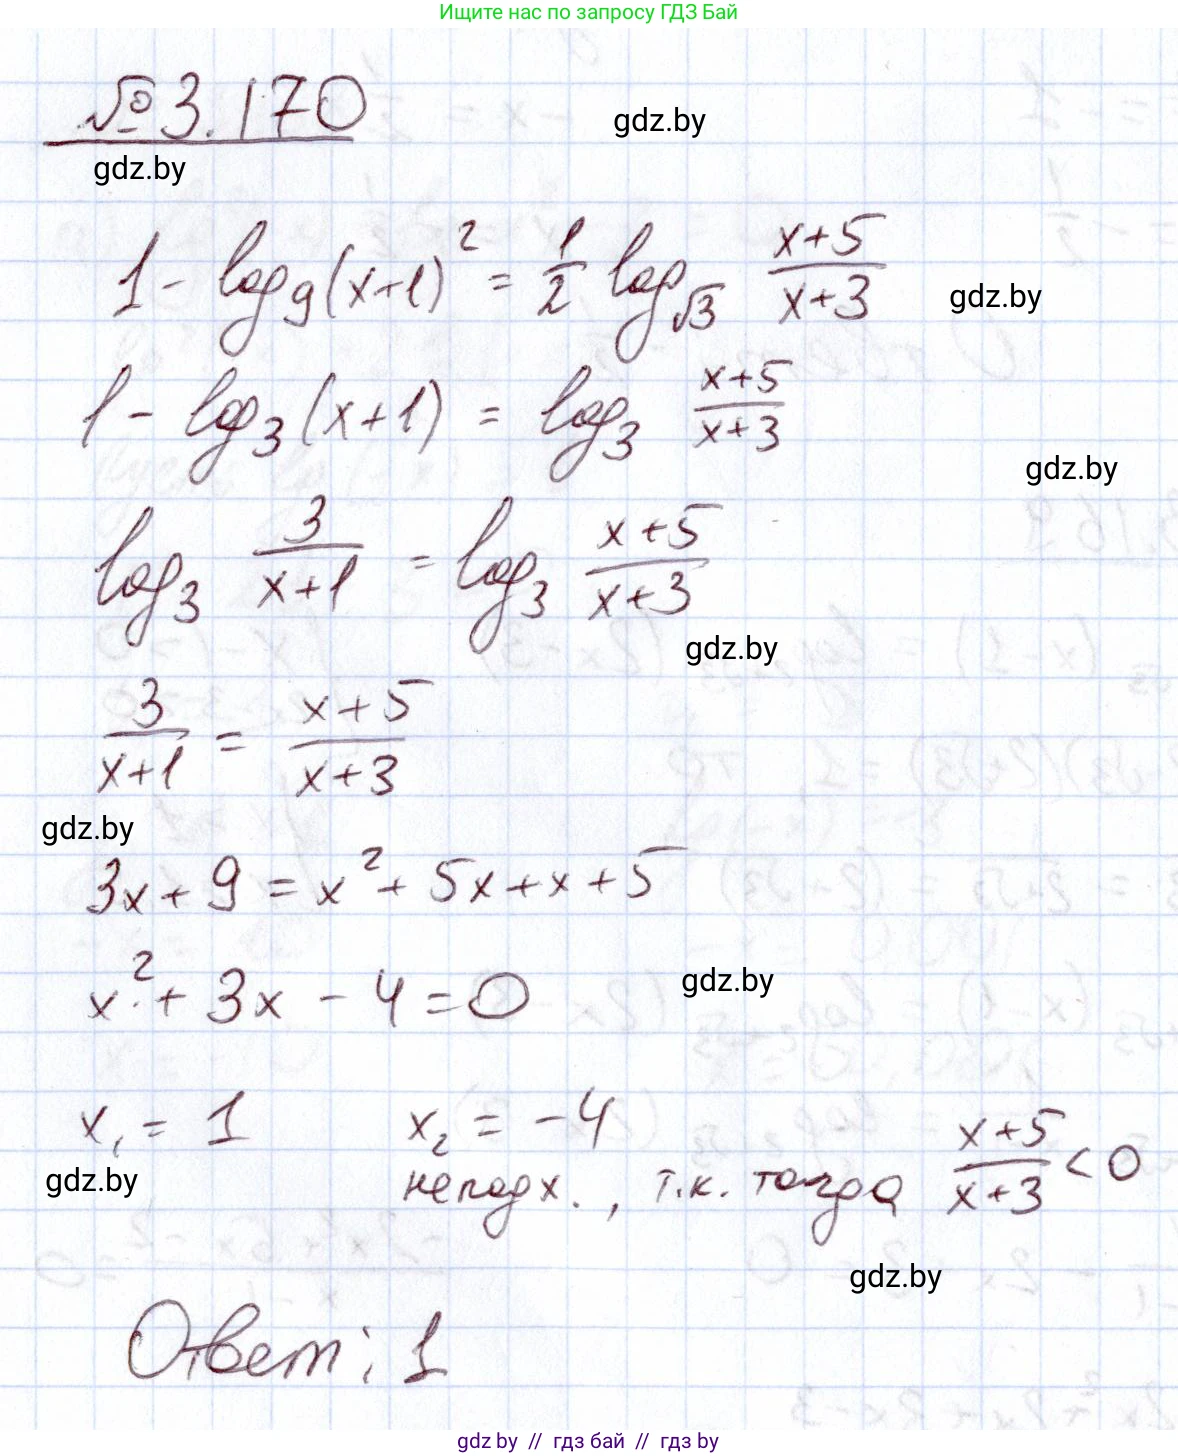 Ищите нас по запросу ГДЗ Бай
№ 3.170
gdz.by
gdz.by
1 - log₉(x+1)² = 1/2 log_√3 (x+5)/(x+3)
gdz.by
1 - log₃(x+1) = log₃ (x+5)/(x+3)
gdz.by
log₃ 3/(x+1) = log₃ (x+5)/(x+3)
gdz.by
3/(x+1) = (x+5)/(x+3)
gdz.by
3x + 9 = x² + 5x + x + 5
x² + 3x - 4 = 0
gdz.by
x₁ = 1 x₂ = -4
gdz.by
не подх., т.к. тогда (x+5)/(x+3) < 0
gdz.by
Ответ: 1
gdz.by // гдз бай // гдз by